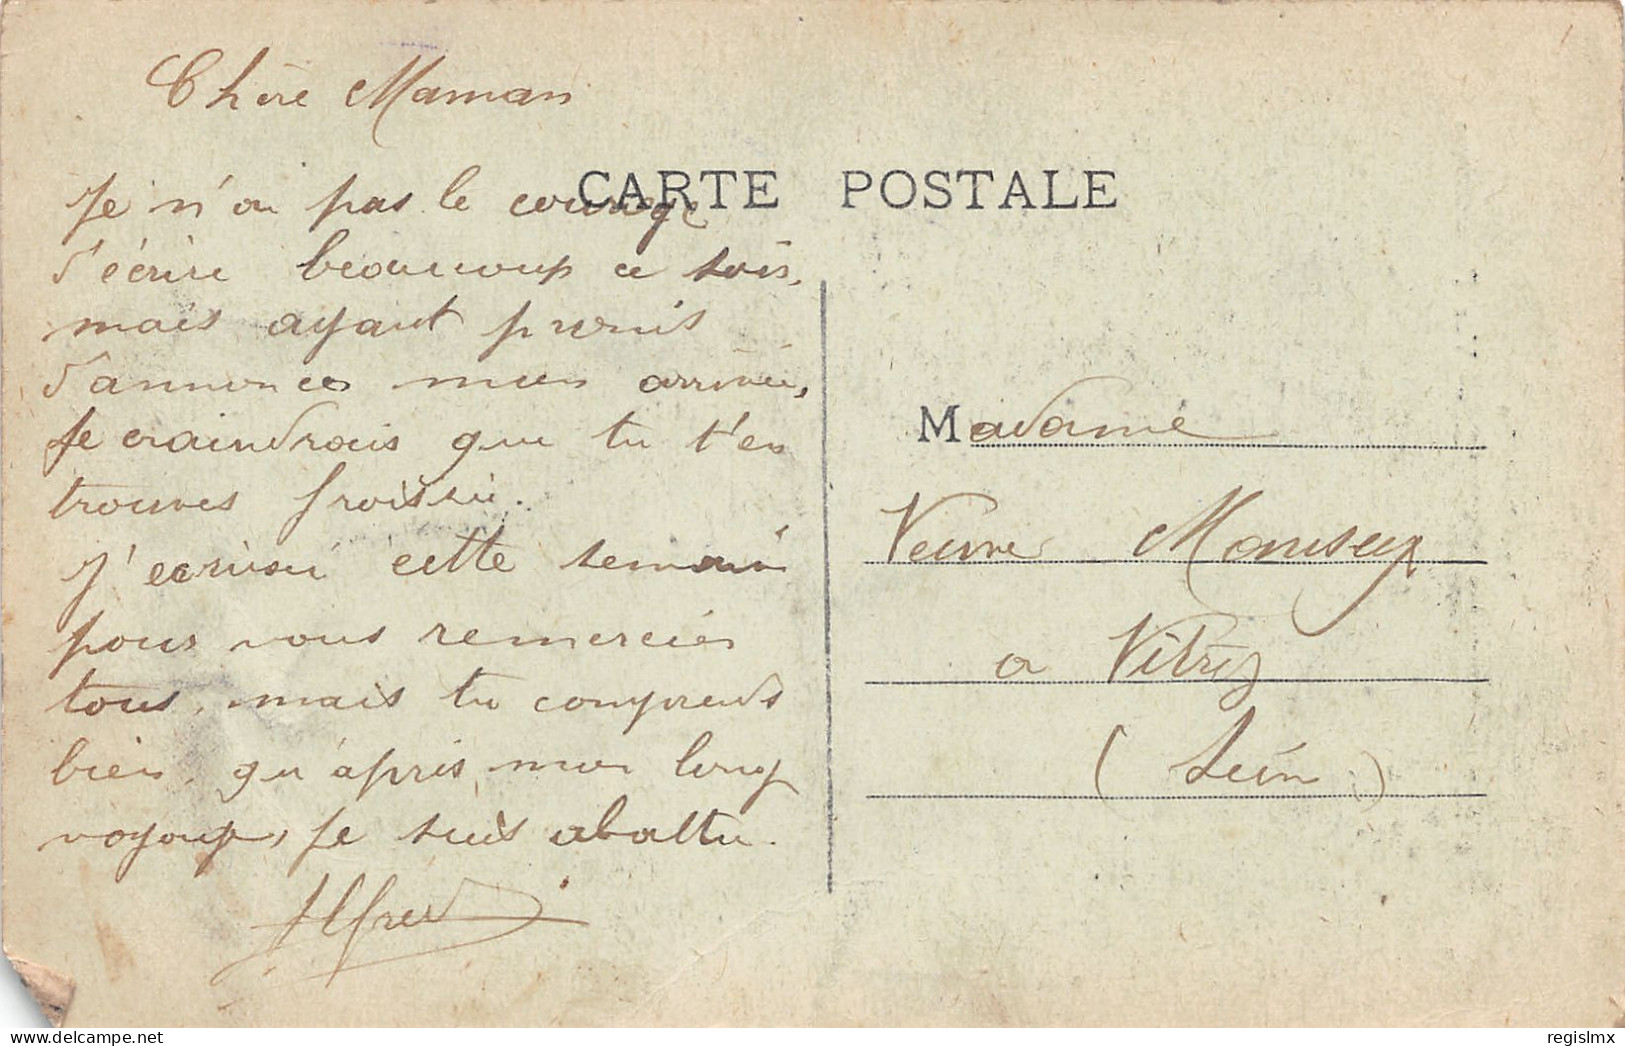 Chère Maman
Je n'ai pas le courage
d'écrire beaucoup ce soir,
mais ayant promis
d'annoncer mon arrivée,
je craindrais que tu t'en
trouves froissée.
J'ecrirai cette semaine
pour vous remercier
tous, mais tu comprends
bien, qu'après mon long
voyage, je suis abattu.
Alfred
CARTE POSTALE
Madame
Veuve
a Vitry
(Seine)
delcampe.net
regislmx